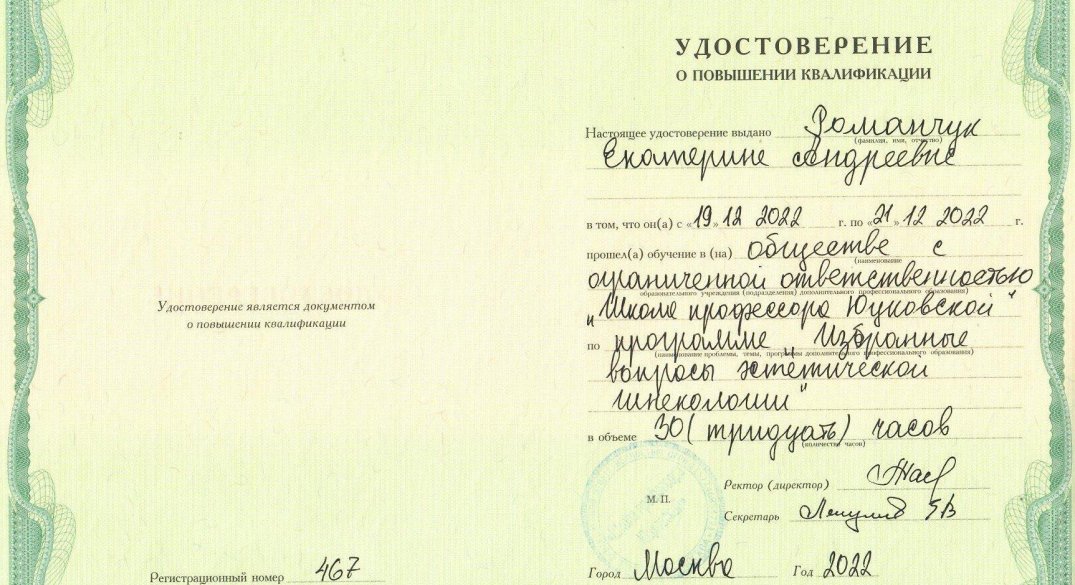 Удостоверение является документом
о повышении квалификации
Регистрационный номер 467
УДОСТОВЕРЕНИЕ
О ПОВЫШЕНИИ КВАЛИФИКАЦИИ
Настоящее удостоверение выдано Романчук
(фамилия, имя, отчество)
Екатерине Андреевне
в том, что он(а) с «19» 12 2022 г. по «21» 12 2022 г.
прошел(а) обучение в (на) обществе с
(наименование
ограниченной ответственностью
образовательного учреждения (подразделения) дополнительного профессионального образования)
"Школа профессора Юцковской"
по программе "Избранные
(наименование проблемы, темы, программы дополнительного профессионального образования)
вопросы эстетической
гинекологии"
в объеме 30 (тридцать) часов
(количество часов)
М. П.
Ректор (директор)
Секретарь
Город Москва Год 2022